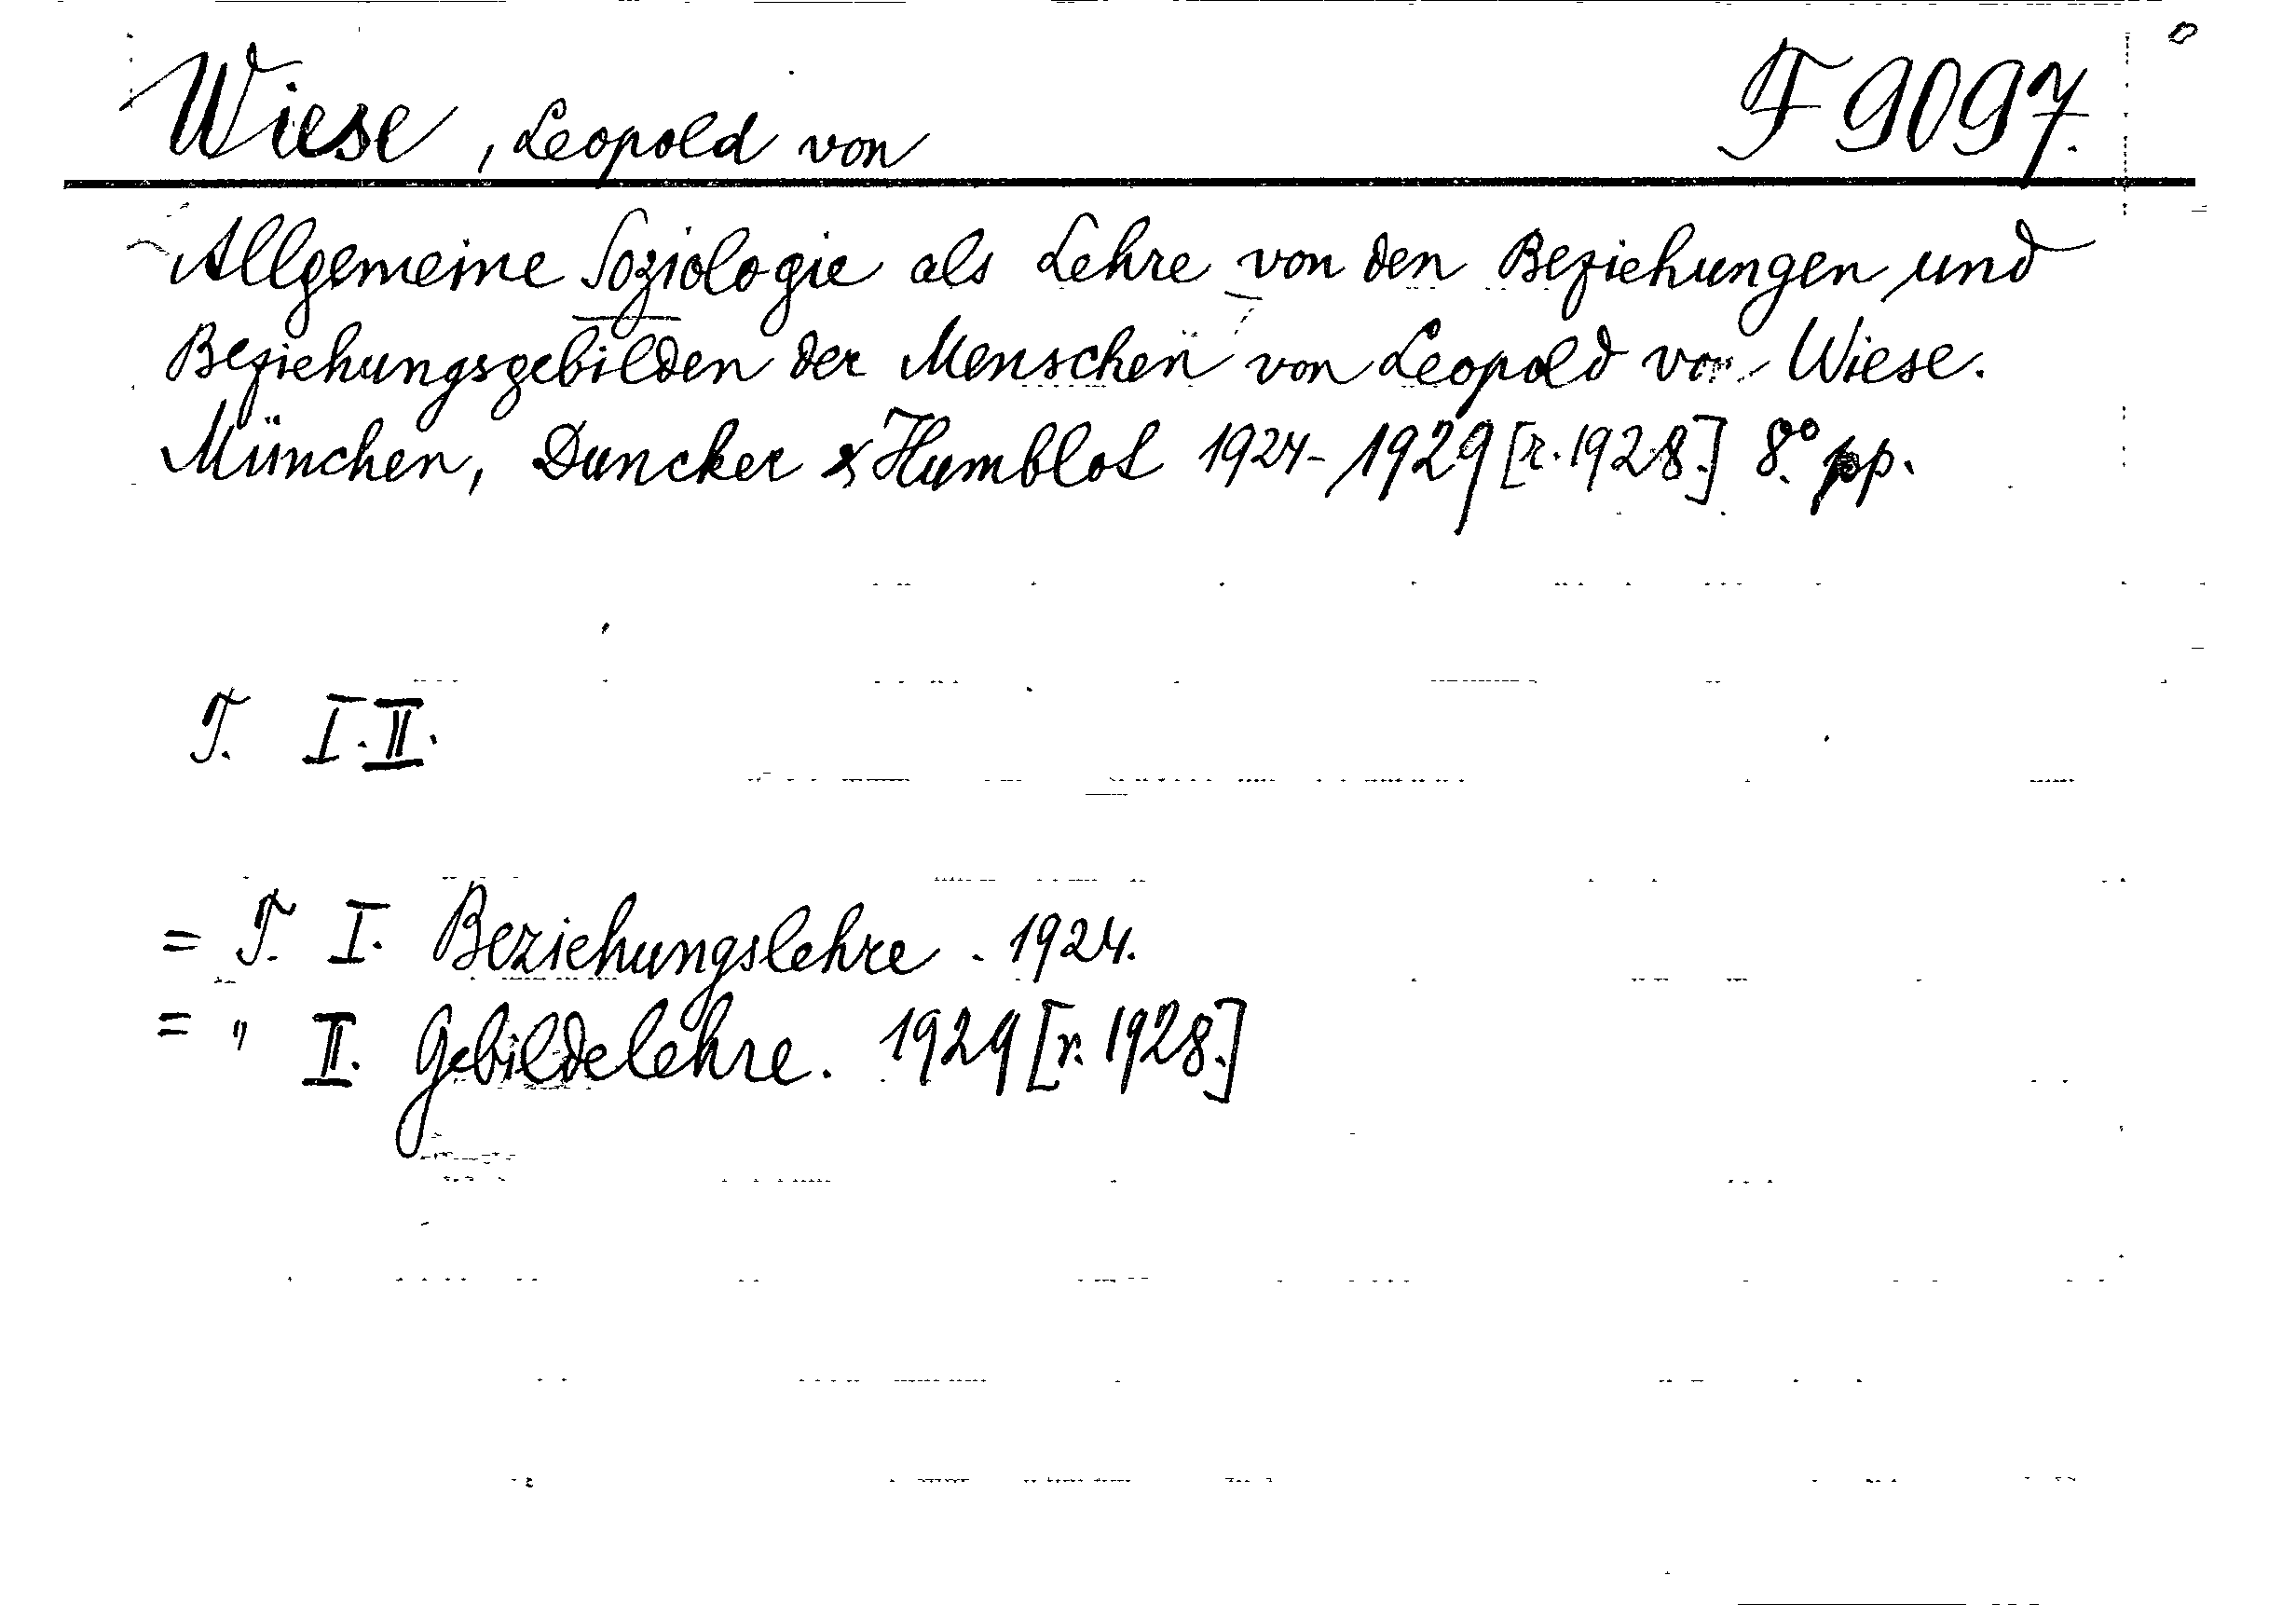 Wiese, Leopold von F 9097.
Allgemeine Soziologie als Lehre von den Beziehungen und
Beziehungsgebilden der Menschen von Leopold von Wiese.
München, Duncker & Humblot 1924-1929 [r. 1928.] 8.° pp.
T. I. II.
= T. I. Beziehungslehre. 1924.
= " II. Gebildelehre. 1929 [r. 1928.]